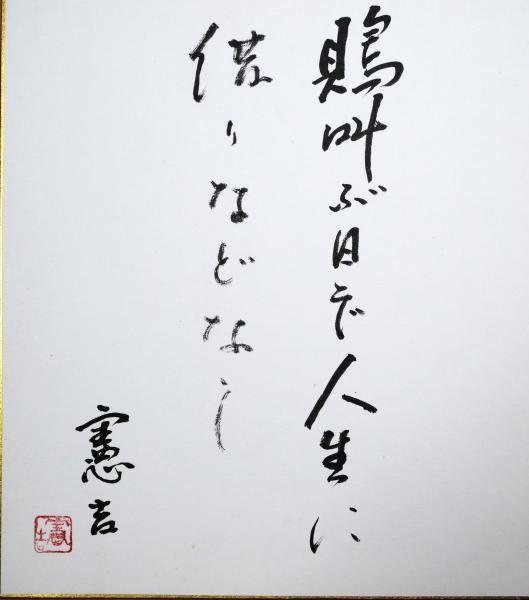 鵙叫ぶ日ぞ人生に
借りなどなし
憲吉
憲吉